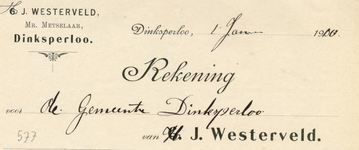 G J. WESTERVELD,
MR. METSELAAR,
Dinksperloo.
Dinksperloo, 1 Jan 1900.
Rekening
voor de Gemeente Dinksperloo
van H. J. Westerveld.
577